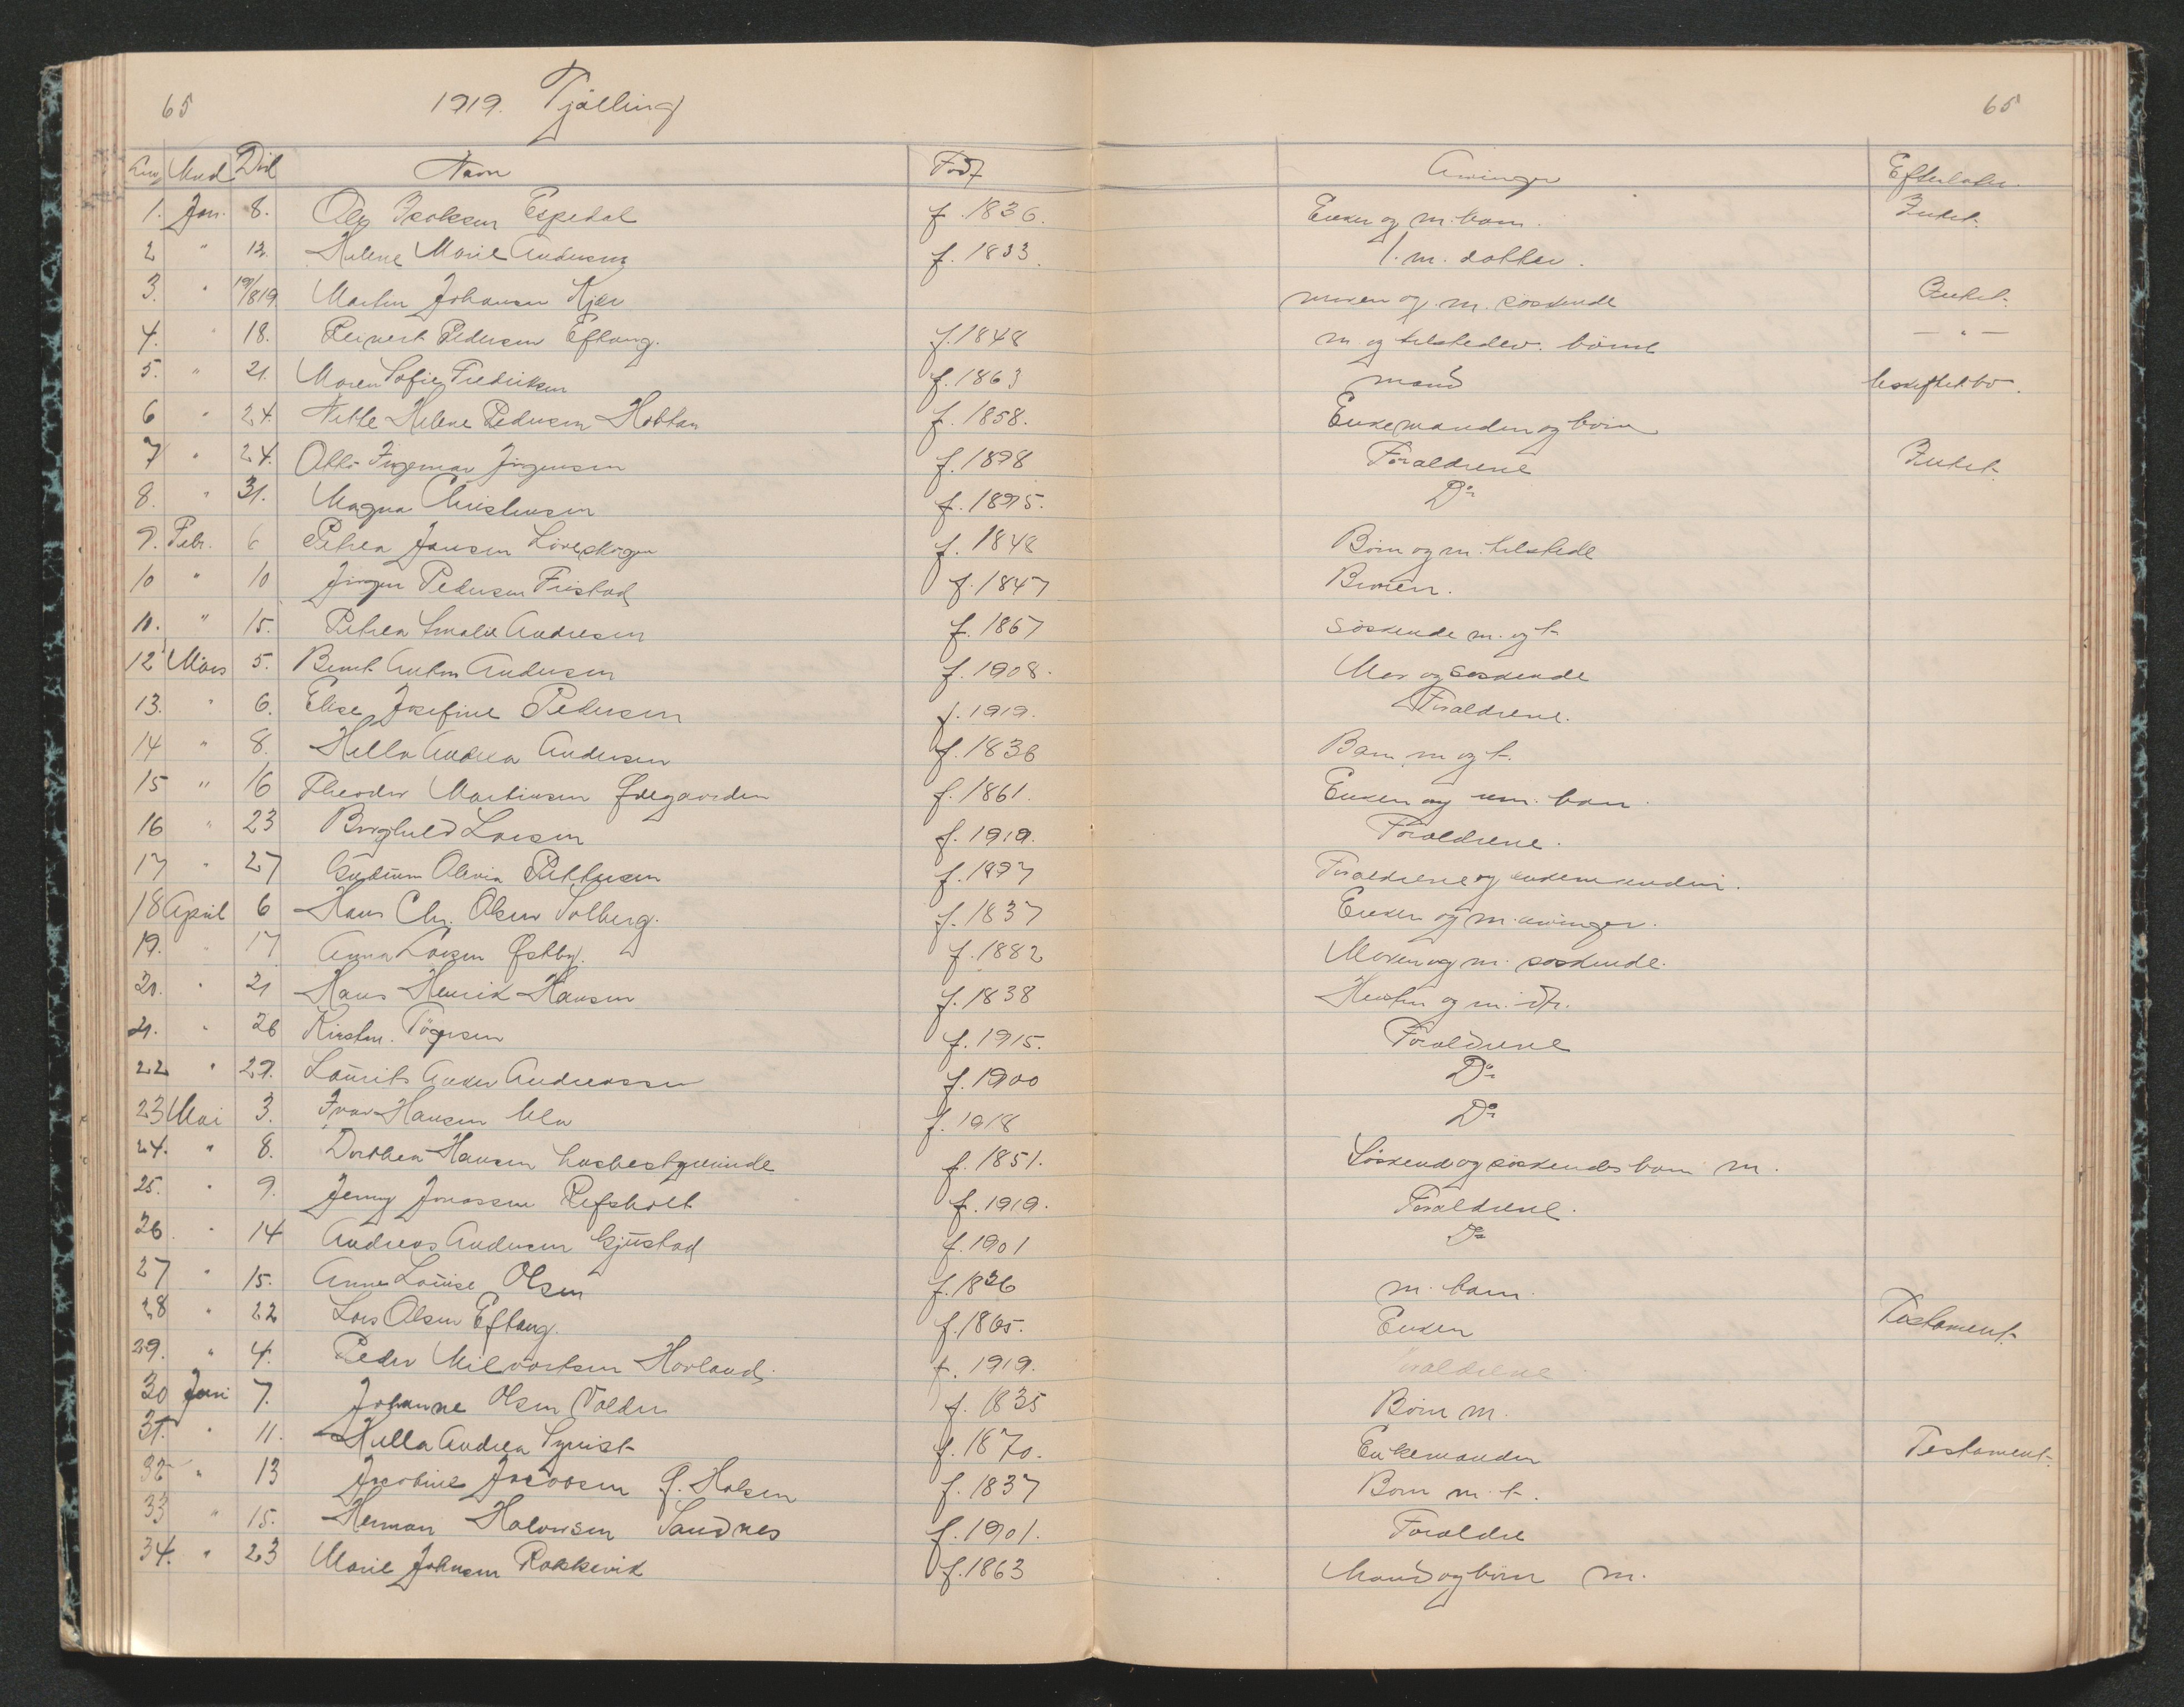 65 1919. Tjølling 65
Mnd Død Navn Født Arvinger Efterlatn.
1. Jan. 8. Ole Isaksen Espedal f. 1836. Enken og m. barn. Intet.
2 " 12. Helene Marie Andersen f. 1833. 1. m. datter.
3. " 19/819 Martin Johansen Kjær moren og m. söskende Intet.
4. " 18. Reinert Pedersen Eftang. f. 1848 m. og tilstedev. börn — " —
5. " 21. Maren Sofie Fredriksen f. 1863 mand
6 " 24. Helene Pedersen f. 1858. Enkemanden og börn
7 " 24. Otto Ingemar Jörgensen f. 1898 Forældrene Intet.
8. " 31. Magna Christensen f. 1895. Do
9. Febr. 6 Petrea Jansen Löveskogen f. 1848 Börn og m. tilstede
10 " 10 Jörgen Pedersen Fristad f. 1847
11. " 15. Petrea Amalie Andresen f. 1867 söskende m. og t
12 Mars 5. Bernt Anton Andersen f. 1908. Mor og söskende
13. " 6. Elise Josefine Pedersen f. 1919. Forældrene.
14 " 8. Hella Andrea Andersen f. 1836 Barn m og t.
15 " 16 Theodor Martinsen Ødegaarden f. 1861. Enken og um. barn.
16 " 23 Borghild Larsen f. 1919. Forældrene.
17 " 27 Gudrun Olavia Pettersen f. 1897 Forældrene og enkemanden.
18 April 6 Hans Chr. Olsen Solberg. f. 1837 Enken og m. arvinger.
19. " 17 Anna Larsen Østby. f. 1882 Moren og m. søskende.
20. " 21 Hans Henrik Hansen f. 1838 og m.
21. " 26 Kirsten Tögersen f. 1915. Forældrene
22 " 29. Laurits Anker Andreassen f. 1900 Do
23 Mai 3. Ivar Hansen Ula f. 1918 Do
24. " 8. Dorthea Hansen husbestyrerinde f. 1851. Söskende og söskendes barn m.
25. " 9. Jenny Jonassen Refsholt f. 1919. Forældrene.
26 " 14 Andreas Andersen Gjustad f. 1901 Do
27 " 15. Anne Louise Olsen f. 1826 m. barn.
28 " 22 Lars Olsen Eftang. f. 1865. Enken Testament.
29. " 4. Peder Milvartsen Hovland. f. 1919. Forældrene
30 Juni 7. Johanne Olsen Valder f. 1835 Börn m.
31. " 11. Hella Andrea f. 1870. Enkemanden Testament.
32 " 13 Jacobine Jacobsen G. Halsen f. 1837 Born m t.
33 " 15. Herman Halvorsen Sandnes f. 1901. Forældre
34. " 23 Marie Johnsen Rakkevik f. 1863 Mand og börn m.